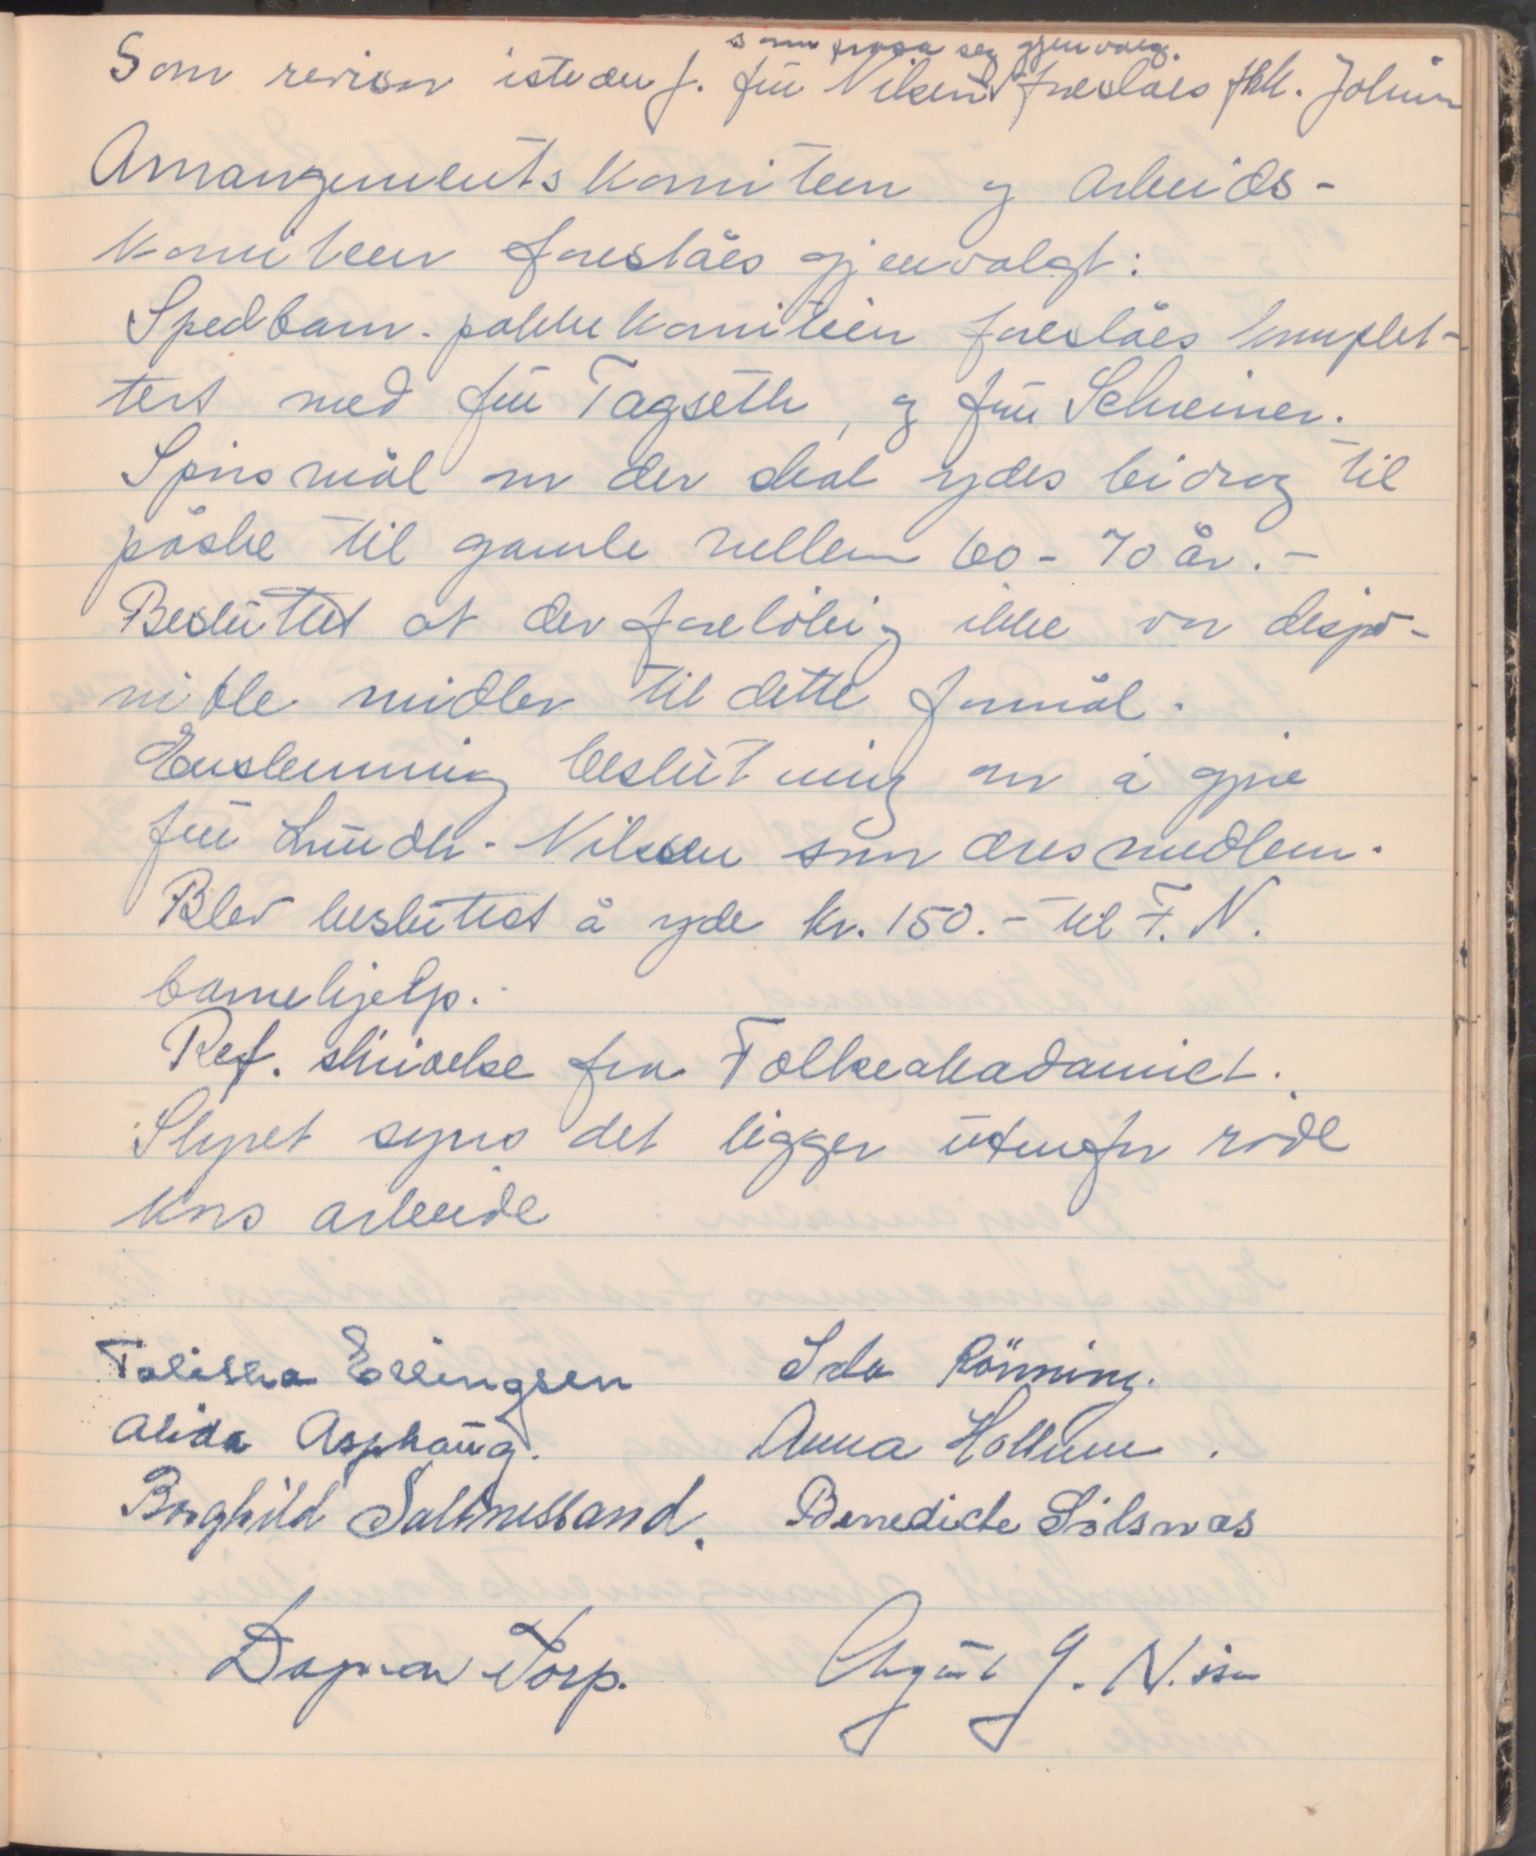 som frasa seg gjenvalg.
Som revisor istedenf. frú Nilsen foreslåes frk. Johnsen
Arrangementskomiteen og arbeids-
komiteen foreslåes gjenvalgt:
Spedbarn-pakkekomiteen foreslåes komplet-
tert med frú Tagseth, og frú Schreiner.
Spörsmål om der skal ydes bidrag til
påske til gamle mellem 60 - 70 år. -
Beslúttet at der foreløbig ikke var dispo-
nible midler til dette formål.
Enstemmig beslútning om å gjøre
frú Lúndh-Nilssen som æresmedlem.
Blev beslúttet å yde kr. 150.- til F. N.
barnehjelp.
Ref. skrivelse fra Folkeakadamiet.
Styret synes det ligger útenfor röde
kors arbeide
Erlingsen Ida Rönning.
Alida Asphaúg. Anna Hollum.
Borghild Saltnessand. Benedicte Sölsnæs
Dagmar Torp. Aúgúst G. Nissen